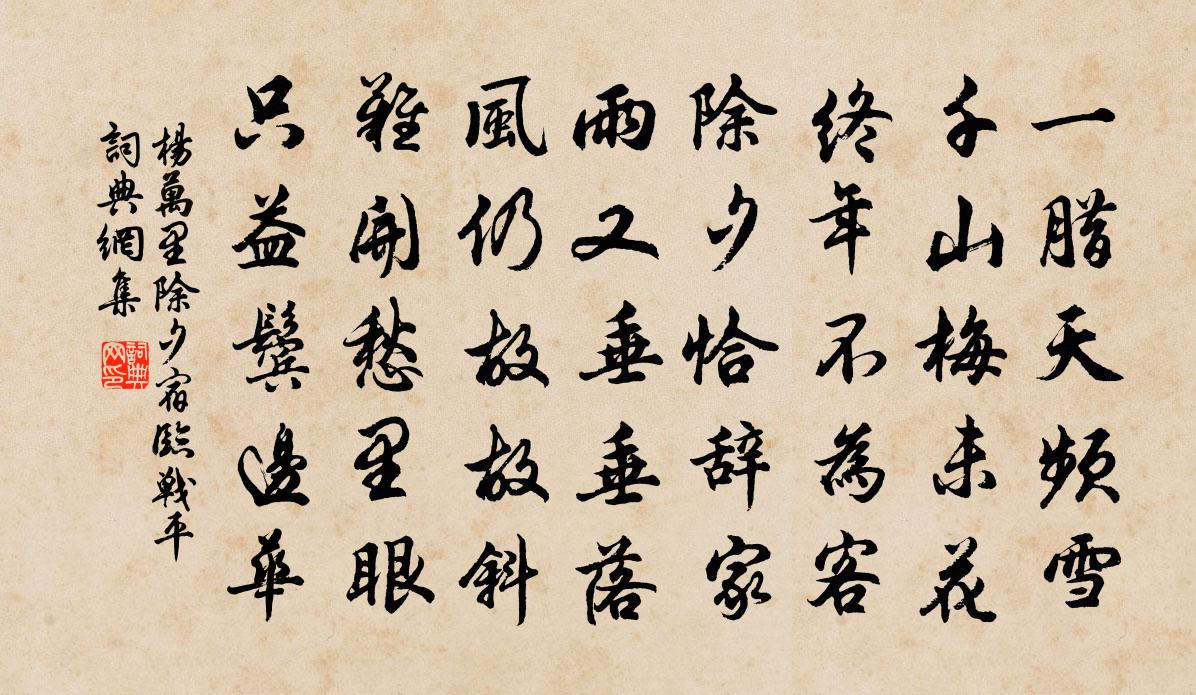 一腊天频雪
千山梅未花
終年不為客
除夕恰辞家
雨又垂垂落
風仍故故斜
難開愁里眼
只益鬢邊華
楊萬里除夕宿臨戰平
詞典網集
詞典网印